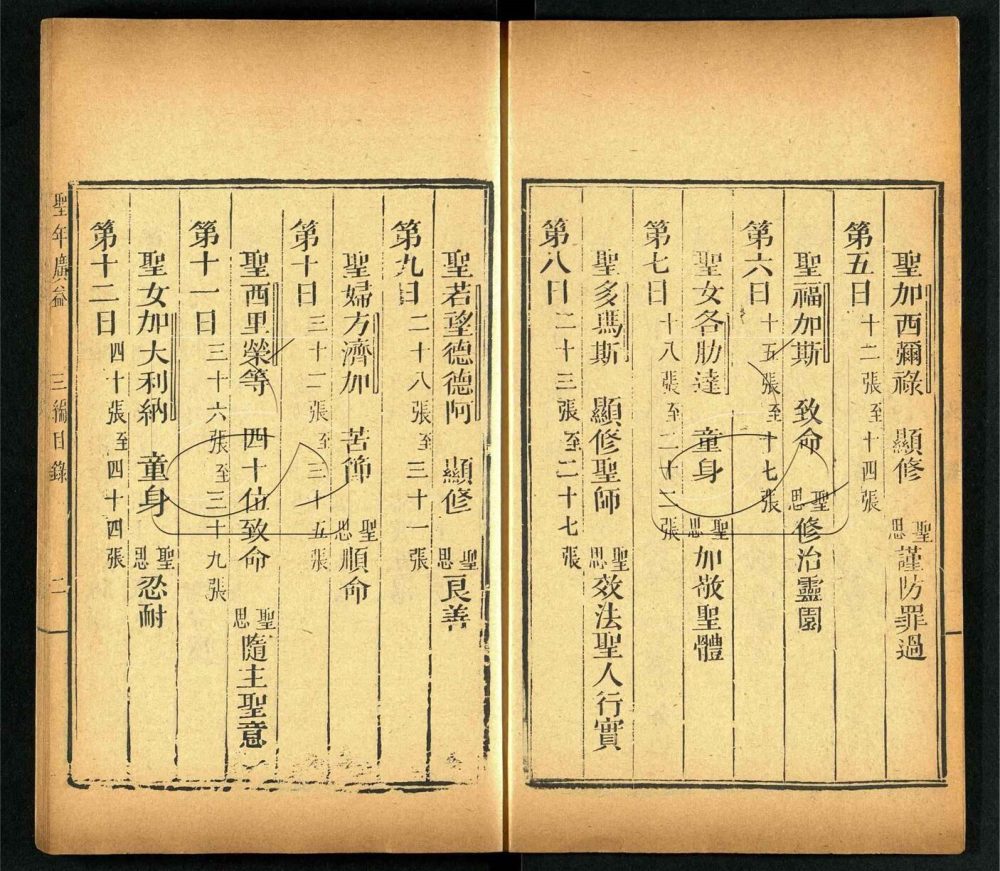 聖加西彌祿 顯修 聖思 謹防罪過
第五日 十二張至十四張
聖福加斯 致命 聖思 修治靈園
第六日 十五張至十七張
聖女各肋達 童身 聖思 加敬聖體
第七日 十八張至二十二張
聖多瑪斯 顯修聖師 聖思 效法聖人行實
第八日 二十三張至二十七張
聖若望德德阿 顯修 聖思 良善
第九日 二十八張至三十一張
聖婦方濟加 苦節 聖思 順命
第十日 三十二張至三十五張
聖西里榮等 四十位致命 聖思 隨主聖意
第十一日 三十六張至三十九張
聖女加大利納 童身 聖思 忍耐
第十二日 四十張至四十四張
聖年廣益 三編目錄 二